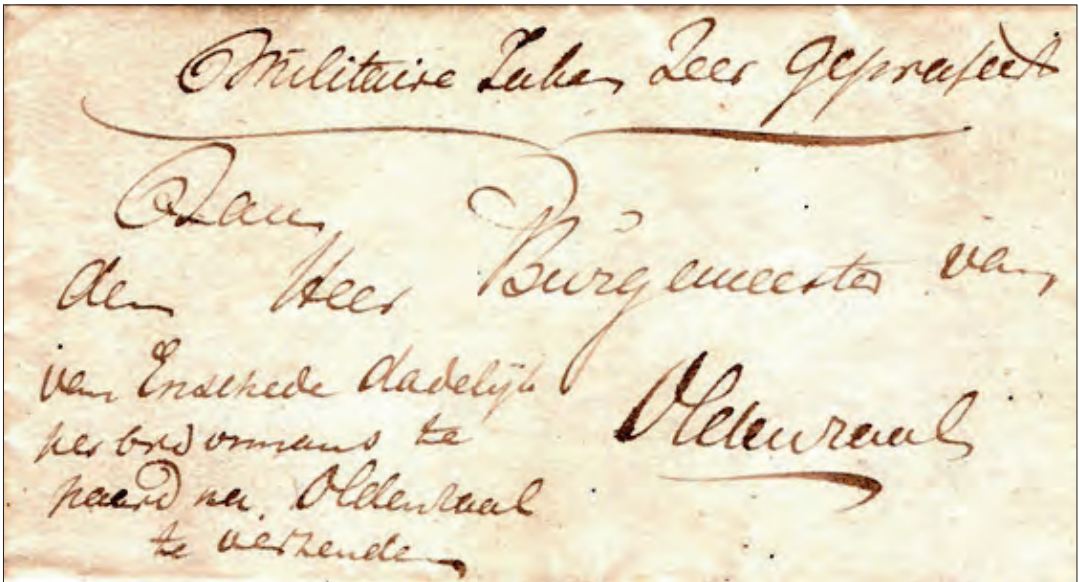 Militaire Zaken Zeer gepresseert
Aan
den Heer Burgemeester van
Oldenzaal
van Enschede dadelijk
per ordonnans te
paard na Oldenzaal
te verzenden